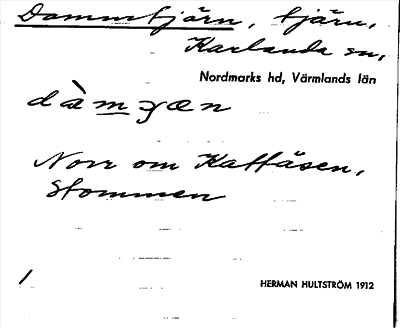 Dammtjärn, tjärn,
Karlanda sn,
Nordmarks hd, Värmlands län
dàmʒæn
Norr om Kattåsen,
Stommen
/
HERMAN HULTSTRÖM 1912